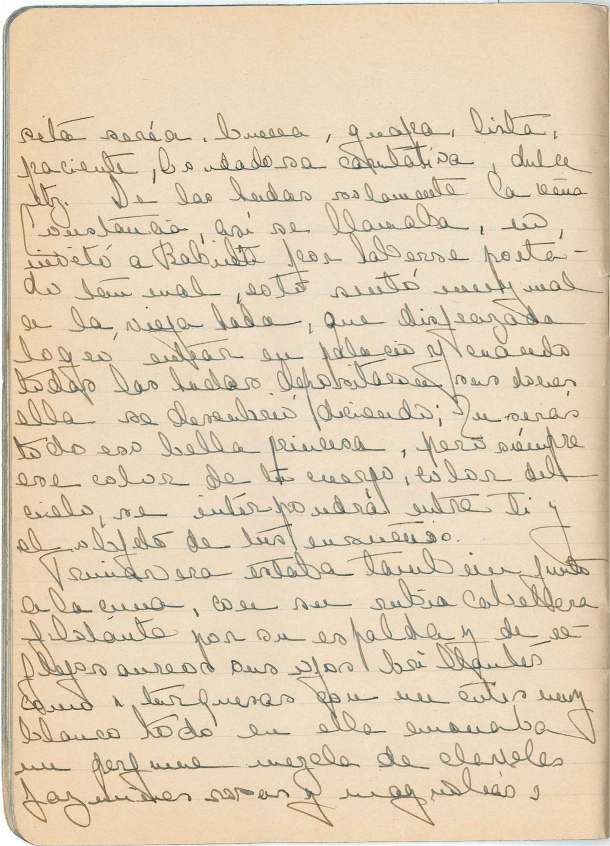 sita serás. buena, guapa, lista,
paciente, bondadosa caritativa, dulce
etz. De las hadas solamente la reina
Constancia, así se llamaba, no,
invitó a Babieta por haberse porta-
do tan mal, esto sentó muy mal
a la vieja hada, que disfrazada
logró entrar en palacio y cuando
todas las hadas depositaron sus dones
ella se descubrió diciendo; Tu serás
todo eso bella princesa, pero siempre
ese color de tu cuerpo, color del
cielo, se interpondrá entre ti y
el objeto de tus ensueños.
Primavera estaba tambien junto
a la cuna, con su rubia cabellera
flotante por su espalda y de re-
flejos aureos sus ojos brillantes
como turquesas con un cutis muy
blanco todo en ella emanaba
un perfume mezcla de claveles
jazmines rosas y magnolias,